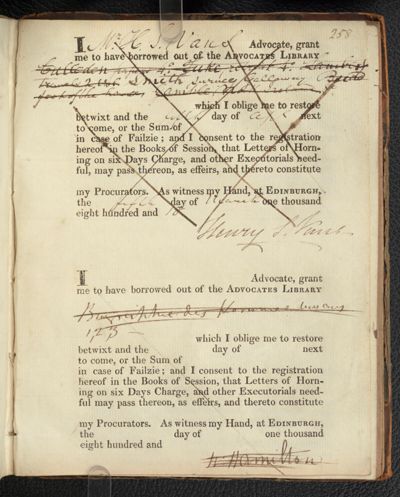 258
I Mr H. S. Vans Advocate, grant
me to have borrowed out of the ADVOCATES LIBRARY
Culloden
Travels 2 vol Smith Survey Galloway
Rambles
which I oblige me to restore
betwixt and the day of next
to come, or the Sum of
in case of Failzie; and I consent to the registration
hereof in the Books of Session, that Letters of Horn-
ing on six Days Charge, and other Executorials need-
ful, may pass thereon, as effeirs, and thereto constitute
my Procurators. As witness my Hand, at EDINBURGH,
the fifth day of March one thousand
eight hundred and
Henry S. Vans
I Advocate, grant
me to have borrowed out of the ADVOCATES LIBRARY
Biographie des Hommes
1, 2, 3
which I oblige me to restore
betwixt and the day of next
to come, or the Sum of
in case of Failzie; and I consent to the registration
hereof in the Books of Session, that Letters of Horn-
ing on six Days Charge, and other Executorials need-
ful may pass thereon, as effeirs, and thereto constitute
my Procurators. As witness my Hand, at EDINBURGH,
the day of one thousand
eight hundred and
W Hamilton